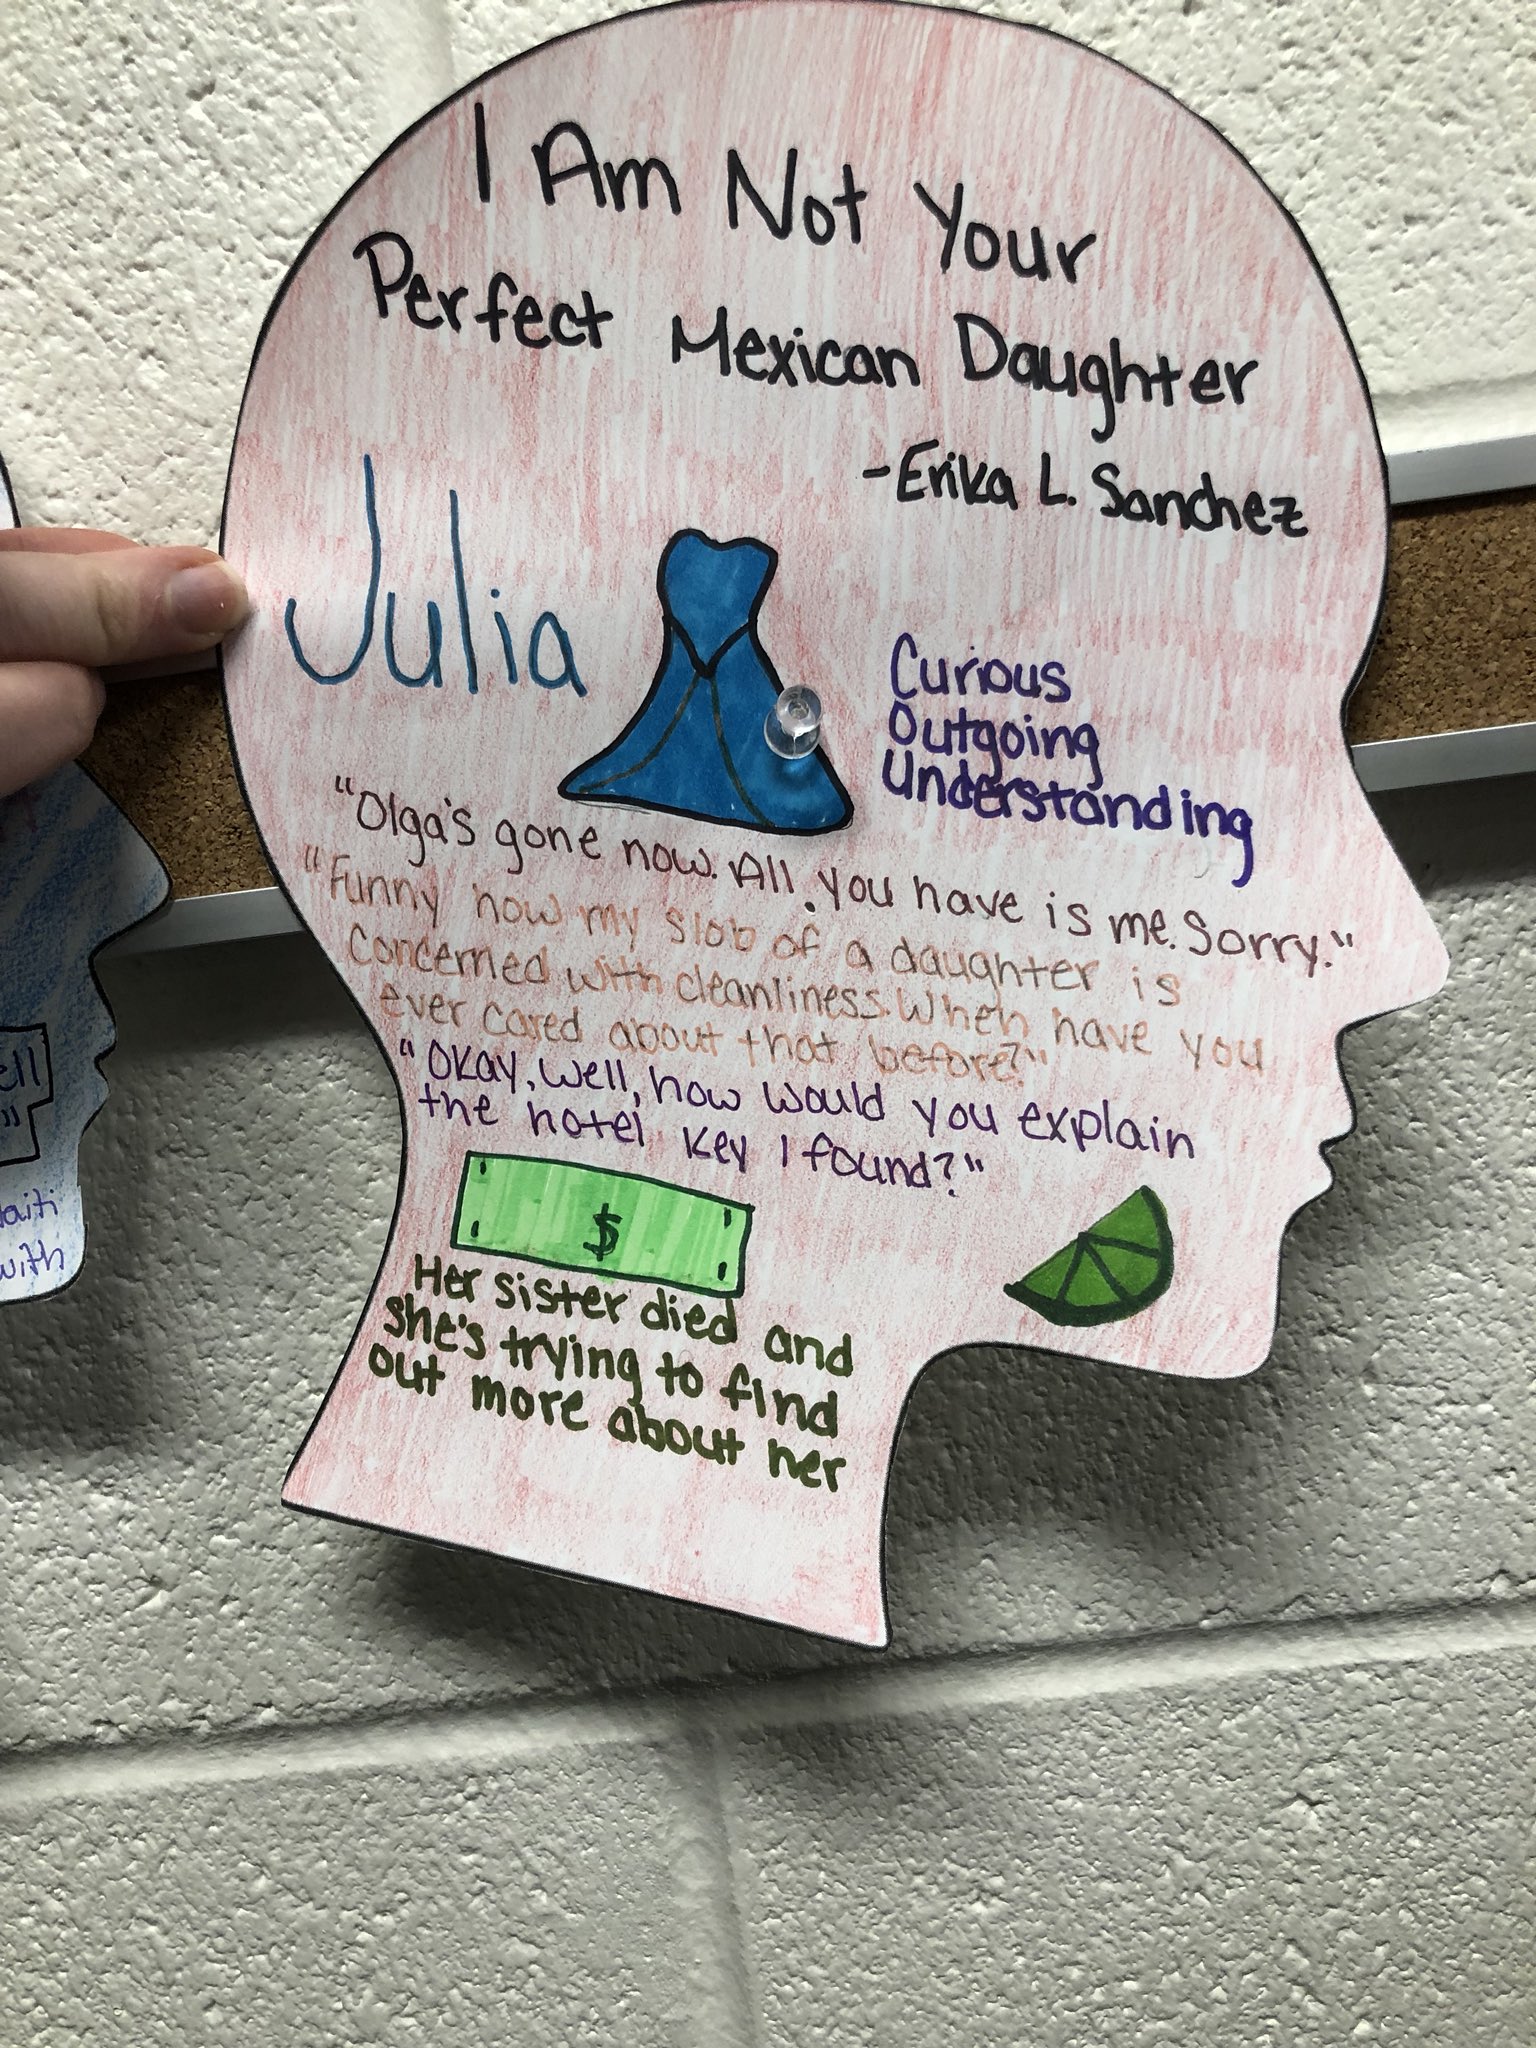 I Am Not Your
Perfect Mexican Daughter
-Erika L. Sanchez
Julia
Curious
Outgoing
Understanding
"Olga's gone now. All you have is me. Sorry."
"Funny how my slob of a daughter is
concerned with cleanliness. When have you
ever cared about that before?"
"Okay, well, how would you explain
the hotel key I found?"
$
Her sister died and
she's trying to find
out more about her
ell
"
aiti
with